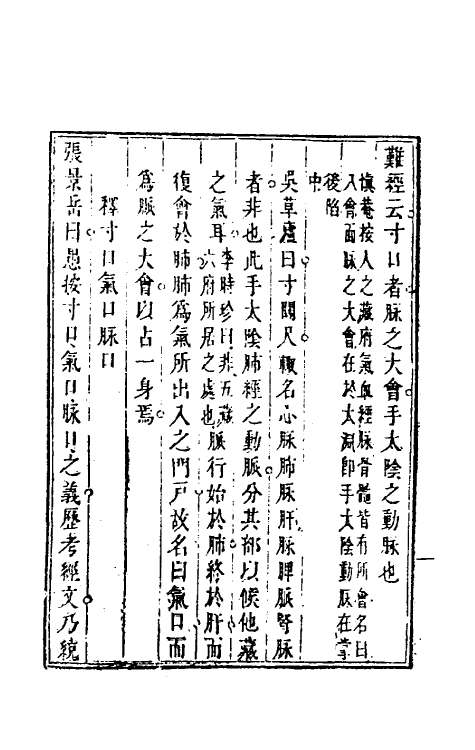 難經云寸口者脉之大會手太陰之動脉也
愼菴按人之藏府氣血經脉骨髓皆有所會名曰
八會而脉之大會在於太淵卽手太陰動脉在掌
後陷
中
吳草廬曰寸關尺輒名心脉肺脉肝脉脾脉腎脉
者非也此手太陰肺經之動脈分其部以候他藏
之氣耳
李時珍曰非五藏
六府所居之處也
脈行始於肺終於肝而
復會於肺肺爲氣所出入之門戶故名曰氣口而
爲脈之大會以占一身焉
釋寸口氣口脉口
張景岳曰愚按寸口氣口脉口之義歷考經文乃統